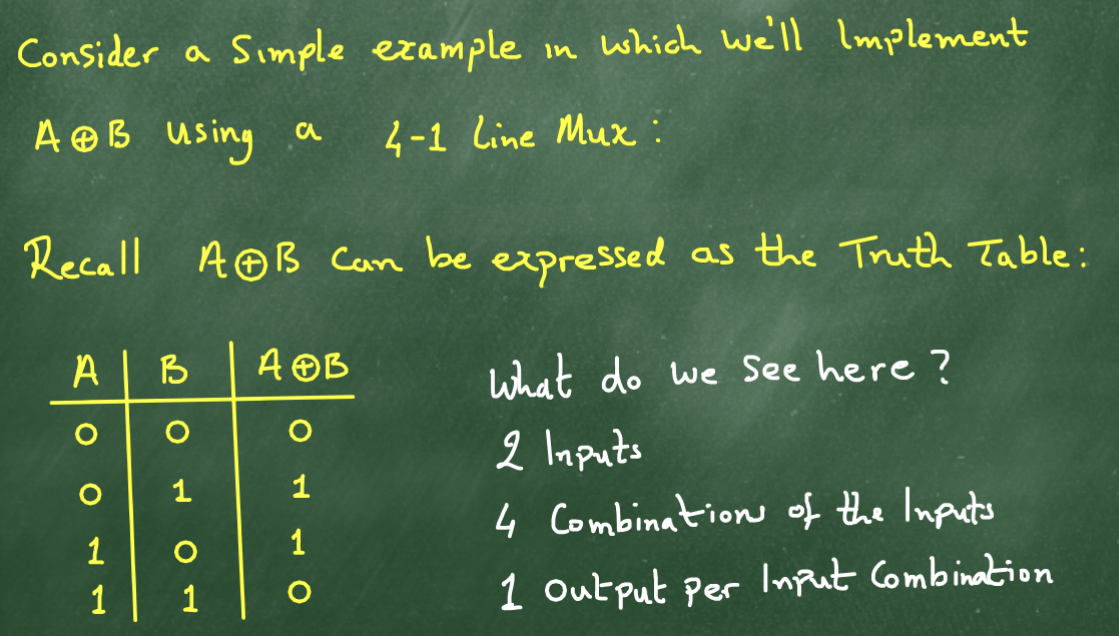 Consider a Simple example in which we'll Implement
A ⊕ B using a 4-1 Line Mux :
Recall A ⊕ B can be expressed as the Truth Table :
A B A ⊕ B
0 0 0
0 1 1
1 0 1
1 1 0
What do we see here ?
2 Inputs
4 Combinations of the Inputs
1 Output per Input Combination